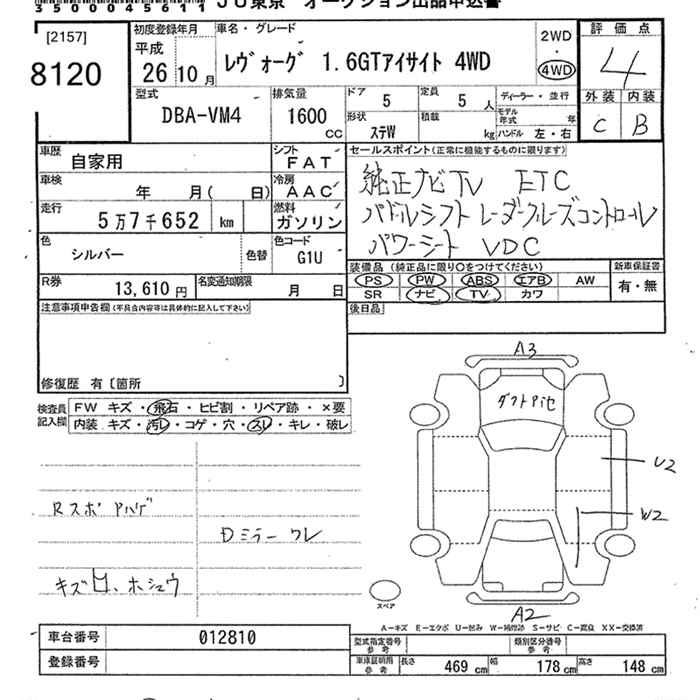 35000045611 JU東京 オークション出品申込書
[2157]
8120
初度登録年月
平成
26年10月
車名・グレード
レヴォーグ 1.6GTアイサイト 4WD
2WD
・
4WD
評価点
4
外装 内装
C B
型式
DBA-VM4
排気量
1600
CC
ドア 5
定員 5 人
ディーラー・並行
形状 ステW
積載 kg
モデル年式 年
ハンドル 左・右
車歴 自家用
シフト FAT
車検 年 月( 日)
冷房 AAC
走行 5万7千652 km
燃料 ガソリン
色 シルバー
色替
色コード G1U
R券 13,610円
名変通知期限 月 日
セールスポイント(正常に機能するものに限ります)
純正ナビTV ETC
パドルシフト レーダークルーズコントロール
パワーシート VDC
装備品 (純正品に限り○をつけてください)
PS PW ABS エアB AW
SR ナビ TV カワ
新車保証書
有・無
後日品
注意事項申告欄(不具合内容等は具体的に記入して下さい)
修復歴 有〔箇所 〕
検査員記入欄
FW キズ・飛石・ヒビ割・リペア跡・×要
内装 キズ・汚レ・コゲ・穴・スレ・キレ・破レ
Rスポ Aハゲ
Dミラー ワレ
キズ凹、ホシュウ
A3
U2
W2
A2
スペア
A-キズ E-エクボ U-凹み W-補修跡 S-サビ C-腐食 XX-交換済
車台番号 012810
登録番号
型式指定番号 参考
類別区分番号 参考
車庫証明用 参考
長さ 469 cm 幅 178 cm 高さ 148 cm